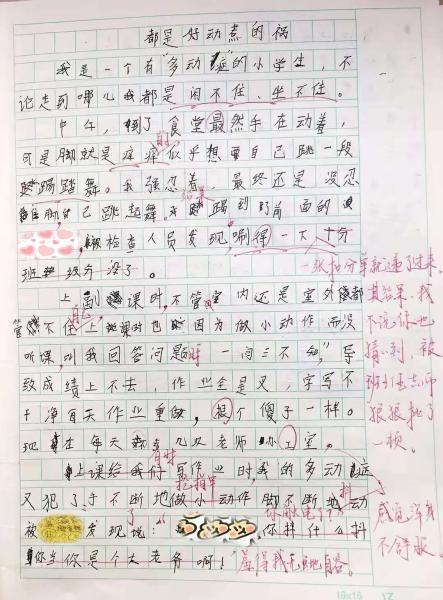 都是好动惹的祸
我是一个有“多动症”的小学生，不
论走到哪儿我都是闲不住、坐不住。
中午，到了食堂虽然手在动着，
可是脚就是痒痒的似乎想要自己跳一段
踢踏舞。我强忍着，最终还是没忍
脚自己跳起舞。结果踢到了前面的
被检查人员发现唰得一下十分
班级分没了。
一张扣分单就递了过来，
其结果，我
不说你也
猜到，被
班主任老师
狠狠批了
一顿。
上副课时，不管室内还是室外都
管不住上课时也能因为做小动作而没
听课，叫我回答问题时一问三不知，导
致成绩上不去，作业全是叉，字写不
干净每天作业重做，像个傻子一样。
现在每天几次老师办公室。
上课给我们写作业时我的多动症
有时
又犯了手不断地做小动作脚不断地动
抖
被发现说：“你抖什么抖
你触电了？
感觉浑身
不舒服
你当你是个大老爷啊！”羞得我无地自容。
18×16